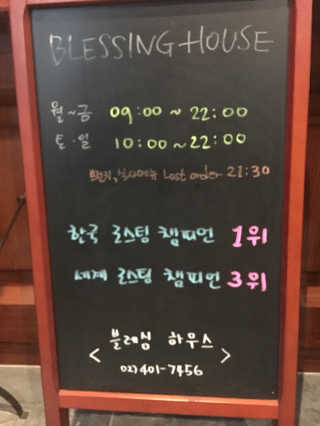 BLESSING HOUSE
월~금 09:00 ~ 22:00
토·일 10:00 ~ 22:00
브런치, 식사메뉴 Last order 21:30
한국 로스팅 챔피언 1위
세계 로스팅 챔피언 3위
블레싱 하우스
< 02) 401-7456 >